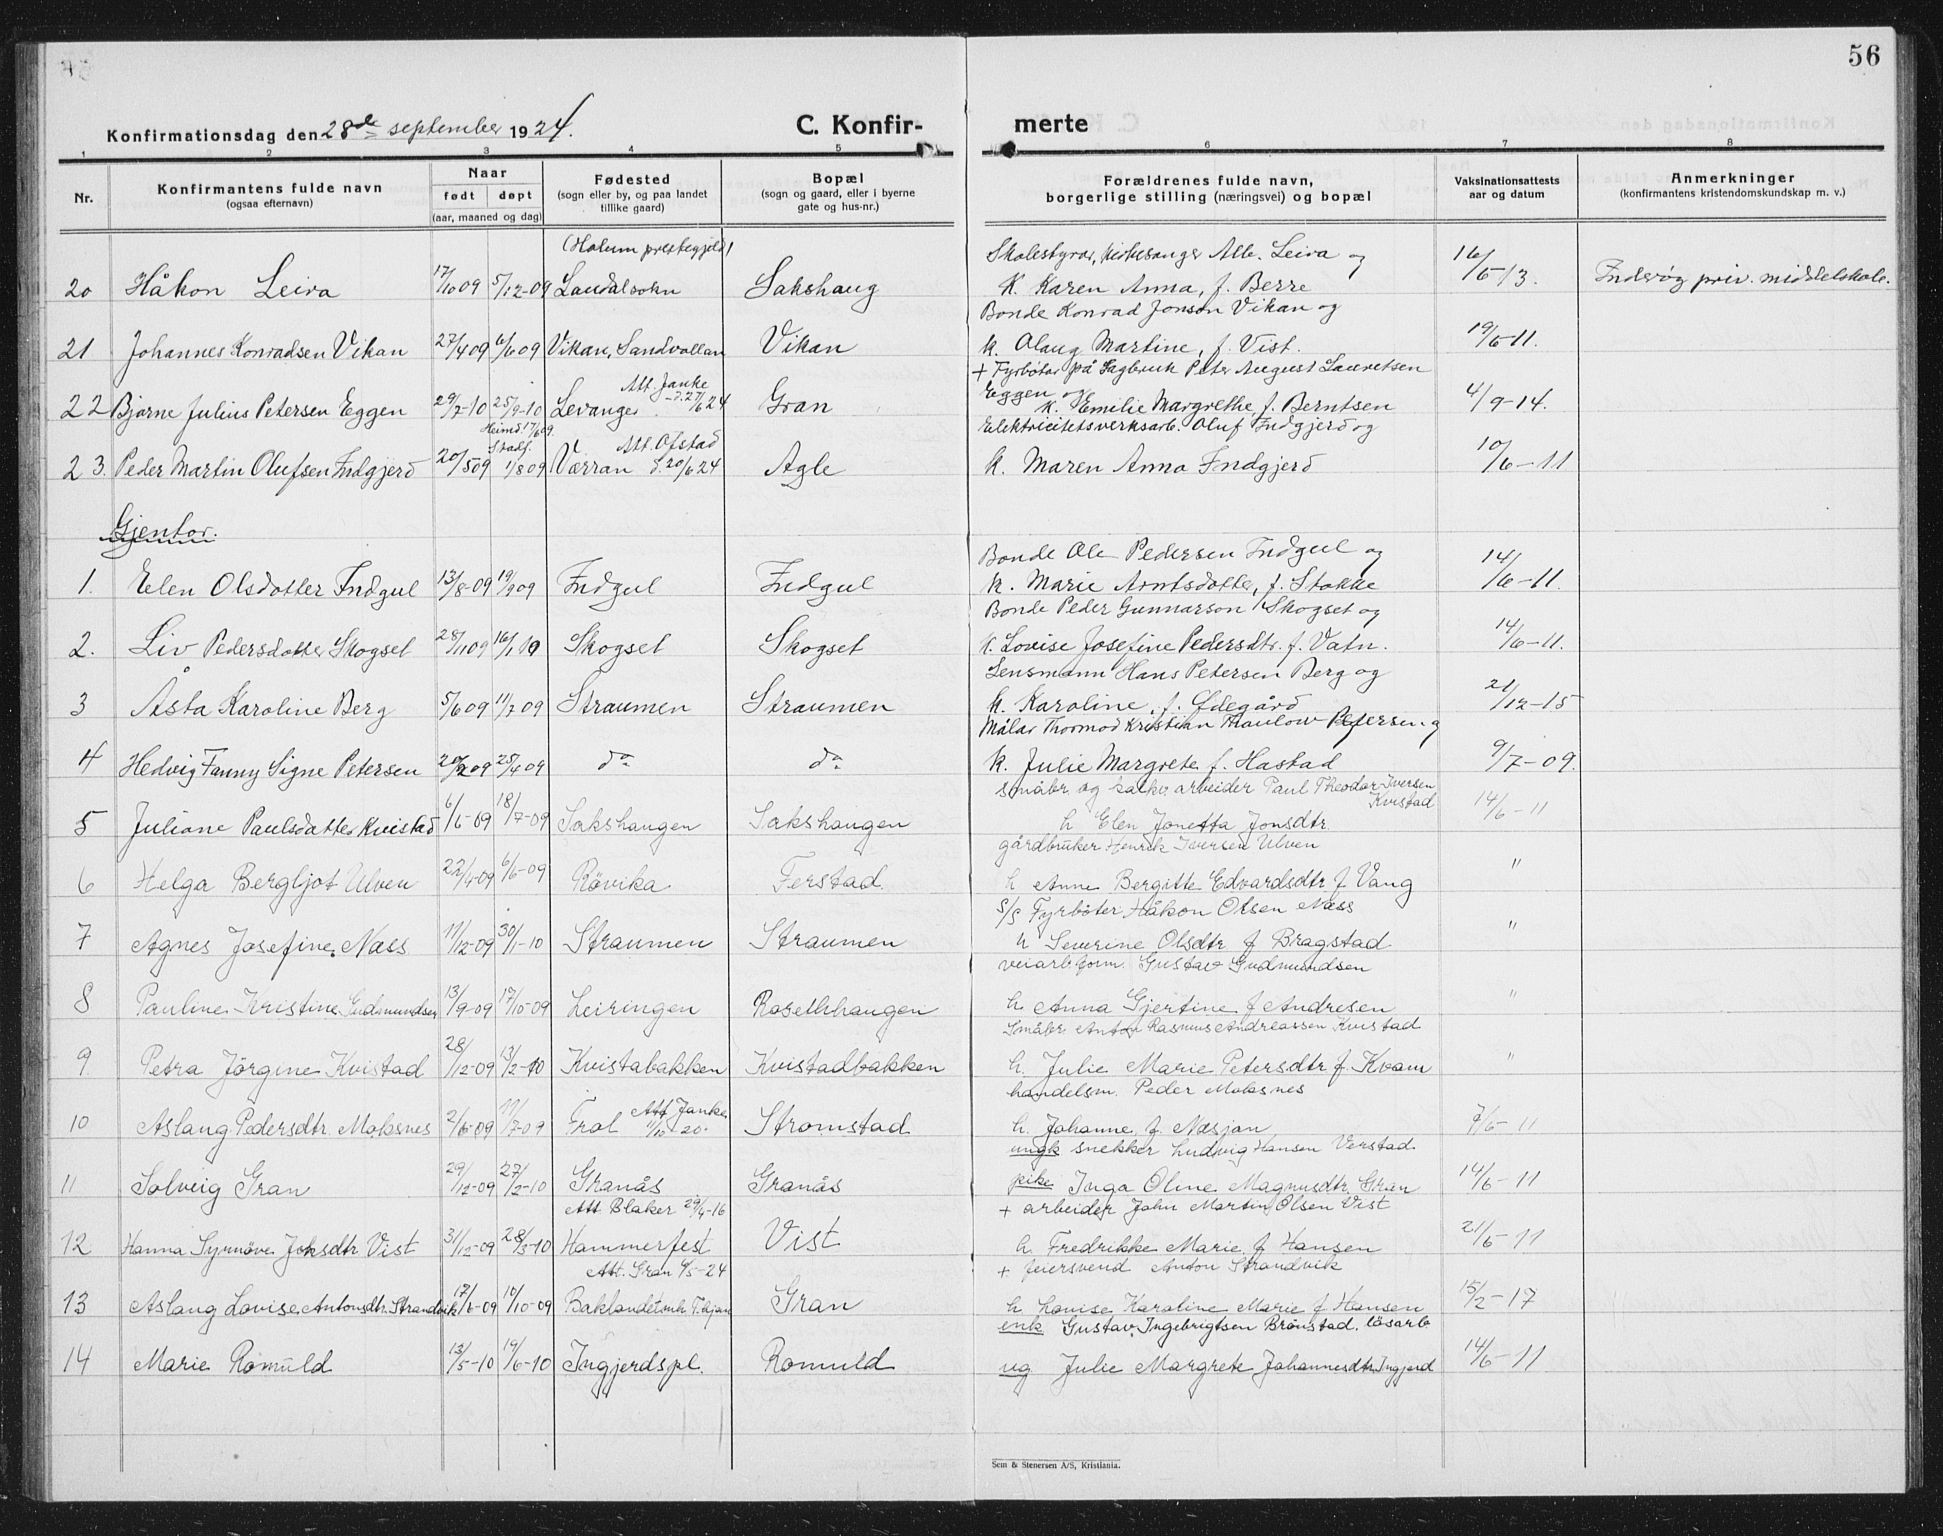 56
Konfirmationsdag den 28de september 1924.
C. Konfir- merte
1 2 3 4 5 6 7 8
Nr.
Konfirmantens fulde navn
(ogsaa efternavn)
Naar
født døpt
(aar, maaned og dag)
Fødested
(sogn eller by, og paa landet
tillike gaard)
Bopæl
(sogn og gaard, eller i byerne
gate og hus-nr.)
Forældrenes fulde navn,
borgerlige stilling (næringsvei) og bopæl
Vaksinationsattests
aar og datum
Anmerkninger
(konfirmantens kristendomskundskap m. v.)
(Holum prestegjeld) Skolestyrar, kirkesanger Alb. Leira og
20 Håkon Leira 17/10 09 5/12-09 Laudalsokn Sakshaug k. Karen Anna, f. Berre 16/5-13. Inderøy priv. middelskole.
Bonde Konrad Jonson Vikan og
21 Johannes Konradsen Vikan 27/4 09 6/6 09 Vikan, Sandvollan Vikan k. Olaug Martine, f. Vist. 19/6-11.
+ Fyrbøter på Sagbruk Peter August Lauretsen
Att. Janke Eggen og
22 Bjarne Julius Petersen Eggen 29/7-10 25/9-10 Levanger - d. 27/6 24 Gran k. Emilie Margrethe, f. Berntsen 4/9-14.
Heimd. 17/6 09. Stadf. Att. Ofstad Elektricitetsverksarb. Oluf Indgjerd og
23. Peder Martin Olufsen Indgjerd 20/5 09 1/8 09 Værran d. 20/6 24 Agle k. Maren Anna Indgjerd 10/6-11
Gjentor.
Bonde Ole Pedersen Indgul og
1. Elen Olsdotter Indgul 13/8-09 19/9 09 Indgul Indgul k. Marie Arntsdotter, f. Stokke 14/6-11.
Bonde Peder Gunnarson Skogset og
2. Liv Pedersdotter Skogset 28/11 09 16/1 10 Skogset Skogset k. Lovise Josefine Pedersdtr. f. Vatn. 14/6-11.
Lensmann Hans Petersen Berg og
3 Åsta Karoline Berg 5/6 09 11/7 09 Straumen Straumen k. Karoline, f. Ødegård 21/12-15
Målar Thormod Kristian Thaulow Petersen. og
4 Hedvig Fanny Signe Petersen 20/2 09 25/4 09 do do k. Julie Margrete f. Hastad 9/7-09.
småbr og arbeider Paul Theodor Iversen
Kvistad
5 Juliane Paulsdatter Kvistad 6/6-09 18/7-09 Sakshaugen Sakshaugen h Elen Jonetta Jonsdtr. 14/6-11
gårdbruker Henrik Iversen Ulven
6 Helga Bergljot Ulven 22/4-09 6/6-09 Røvika Ferstad h Anne Bergitte Edvardsdtr f Vang "
S/S Fyrbøter Håkon Olsen Næss
7 Agnes Josefine Næss 11/12-09 30/1-10 Straumen Straumen h Severine Olsdtr f Bragstad "
veiarb.form. Gustav Gudmundsen
8 Pauline Kristine Gudmundsen 13/9-09 17/10-09 Leiringen Roselhhaugen h Anna Gjertine f Andresen "
Småbr Anton Rasmus Andreassen Kvistad
9. Petra Jørgine Kvistad 28/12-09 13/2-10 Kvistabakken Kvistadbakken h. Julie Marie Petersdtr f. Kvam "
handelsm. Peder Moksnes
10 Aslaug Pedersdtr. Moksnes 2/6-09 11/7-09 Frol Att Janke 11/10 20. Stromstad h. Johanne f. Næsjan 7/6-11
ungk snekker Ludvig Hansen Verstad
11 Solveig Gran 29/12-09 27/2-10 Granås Granås pike Inga Oline Magnusdtr. Gran 14/6-11
Att Blaker 29/4-16 + arbeider John Martin Olsen Vist
12 Hanna Synnøve Johsdtr Vist 31/12-09 28/3-10 Hammerfest Vist h. Fredrikke Marie f Hansen 21/6-11
Att. Gran 6/5-24 + feiersvend Anton Strandvik
13 Aslaug Lovise Antonsdtr. Strandvik 17/6-09 10/10-09 Baklandet Gran h Lovise Karoline Marie f Hansen 15/2-17
enk Gustav Ingebrigtsen Brønstad. løsarb
14 Marie Romuld 13/5-10 19/6-10 Ingjerdspl. Romuld ug Julie Margrete Johannesdtr Ingjerd 14/6-11
Sem & Stenersen A/S, Kristiania.